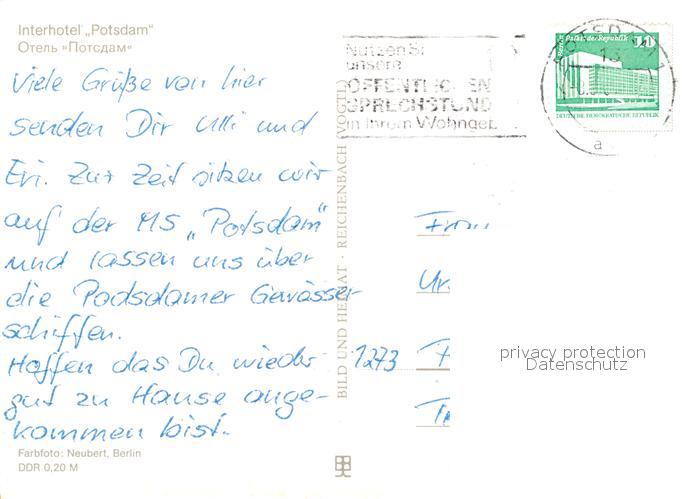 Interhotel „Potsdam"
Отель »Потсдам«
Viele Grüße von hier
senden Dir Ulli und
Evi. Zur Zeit sitzen wir
auf der MS „Potsdam"
und lassen uns über
die Podsdamer Gewässer
schiffen.
Hoffen das Du wieder
gut zu Hause ange-
kommen bist.
Farbfoto: Neubert, Berlin
DDR 0,20 M
BILD UND HEIMAT · REICHENBACH (VOGTL)
Nutzen Si
unsere
ÖFFENTLICHEN
SPRECHSTUND
in Ihrem Wohngeb
Palast der Republik
10
DEUTSCHE DEMOKRATISCHE REPUBLIK
a
1273
privacy protection
Datenschutz